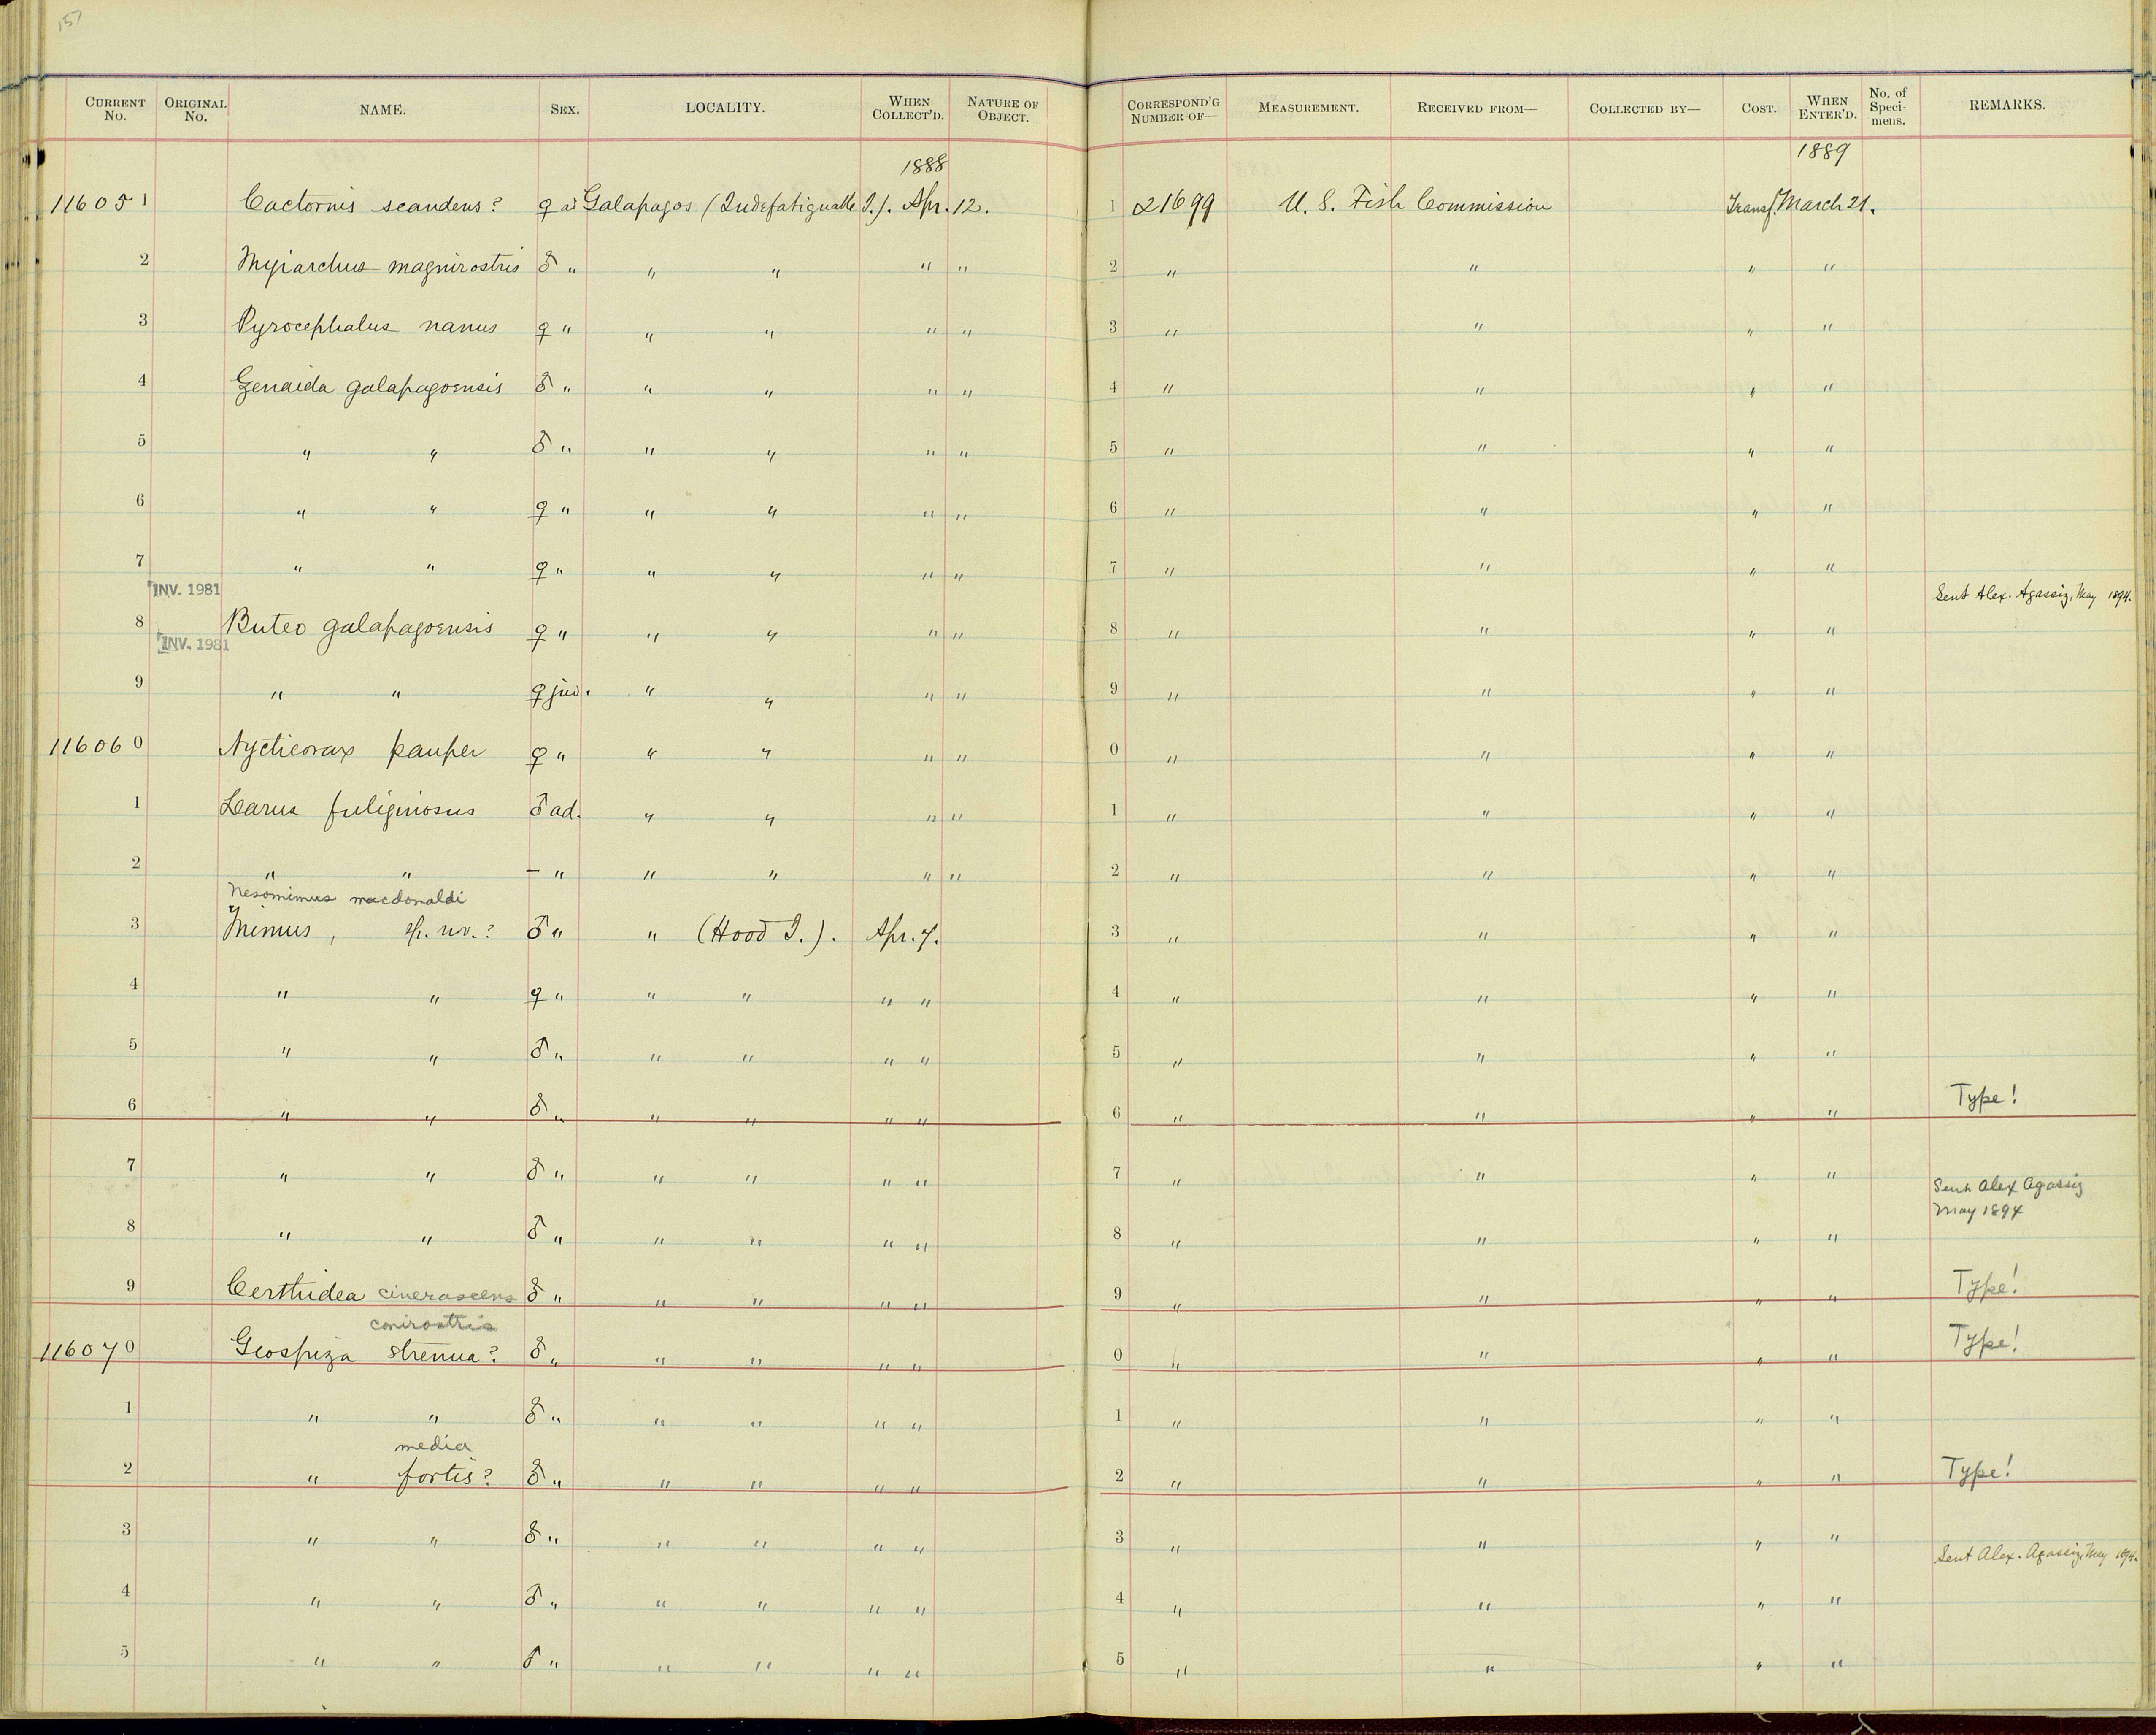 157
CURRENT No. ORIGINAL No. NAME. SEX. LOCALITY. WHEN COLLECT'D. NATURE OF OBJECT. CORRESPOND'G NUMBER OF— MEASUREMENT. RECEIVED FROM— COLLECTED BY— COST. WHEN ENTER'D. No. of Specimens. REMARKS.
1888 1889
116051 Cactornis scandens? ♀ ad Galapagos (Indefatiguable I.). Apr. 12. 1 21699 U. S. Fish Commission Transf. March 21.
2 Myiarchus magnirostris ♂ " " " " " 2 " " " "
3 Pyrocephalus nanus ♀ " " " " " 3 " " " "
4 Zenaida galapagoensis ♂ " " " " " 4 " " " "
5 " " ♂ " " " " " 5 " " " "
6 " " ♀ " " " " " 6 " " " "
7 " " ♀ " " " " " 7 " " " "
INV. 1981 Sent Alex. Agassiz, May 1894.
8 Buteo galapagoensis ♀ " " " " " 8 " " " "
INV. 1981
9 " " ♀ juv. " " " " 9 " " " "
116060 Nycticorax pauper ♀ " " " " " 0 " " " "
1 Larus fuliginosus ♂ ad. " " " " 1 " " " "
2 " " – " " " " " 2 " " " "
Nesomimus macdonaldi
3 Mimus, sp. nov.? ♂ " " (Hood I.). Apr. 7. 3 " " " "
4 " " ♀ " " " " " 4 " " " "
5 " " ♂ " " " " " 5 " " " "
6 " " ♂ " " " " " 6 " " " " Type!
7 " " ♂ " " " " " 7 " " " "
Sent Alex Agassiz
May 1894
8 " " ♂ " " " " " 8 " " " "
9 Certhidea cinerascens ♂ " " " " " 9 " " " " Type!
conirostris
116070 Geospiza strenua? ♂ " " " " " 0 " " " " Type!
1 " " ♂ " " " " " 1 " " " "
media
2 " fortis? ♂ " " " " " 2 " " " " Type!
3 " " ♂ " " " " " 3 " " " "
Sent Alex. Agassiz, May 1894.
4 " " ♂ " " " " " 4 " " " "
5 " " ♂ " " " " " 5 " " " "